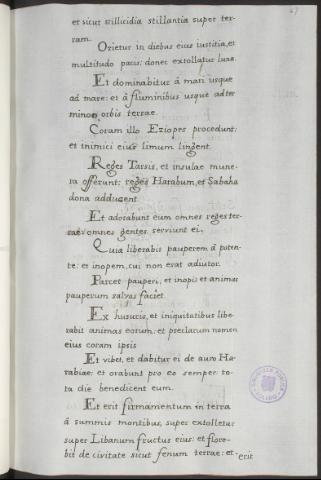 67
et sicut stillicidia stillantia super ter-
ram.
Orietur in diebus eius iustitia, et
multitudo pacis: donec extollatur luna.
Et dominabitur à mari usque
ad mare: et à fluminibus usque ad ter
minos orbis terrae.
Coram illo Eziopes procedunt:
et inimici eius limum lingent.
Reges Tarsis, et insulae mune-
ra offerunt: reges Harabum, et Sabaha
dona adducent.
Et adorabunt eum omnes reges ter-
rae: omnes gentes serviunt ei.
Quia liberabis pauperem à poten-
te: et inopem, cui non erat adiutor.
Parcet pauperi, et inopis et animas
pauperum salvas faciet.
Ex husuris, et iniquitatibus libe-
rabit animas eorum: et preclarum nomen
eius coram ipsis
Et vibet, et dabitur ei de auro Ha-
rabiae: et orabunt pro eo semper to-
ta die benedicent eum.
Et erit firmamentum in terra
à summis montibus, super extolletur
super Libanum fructus eius: et flore-
bit de civitate sicut fenum terrae: et-
erit